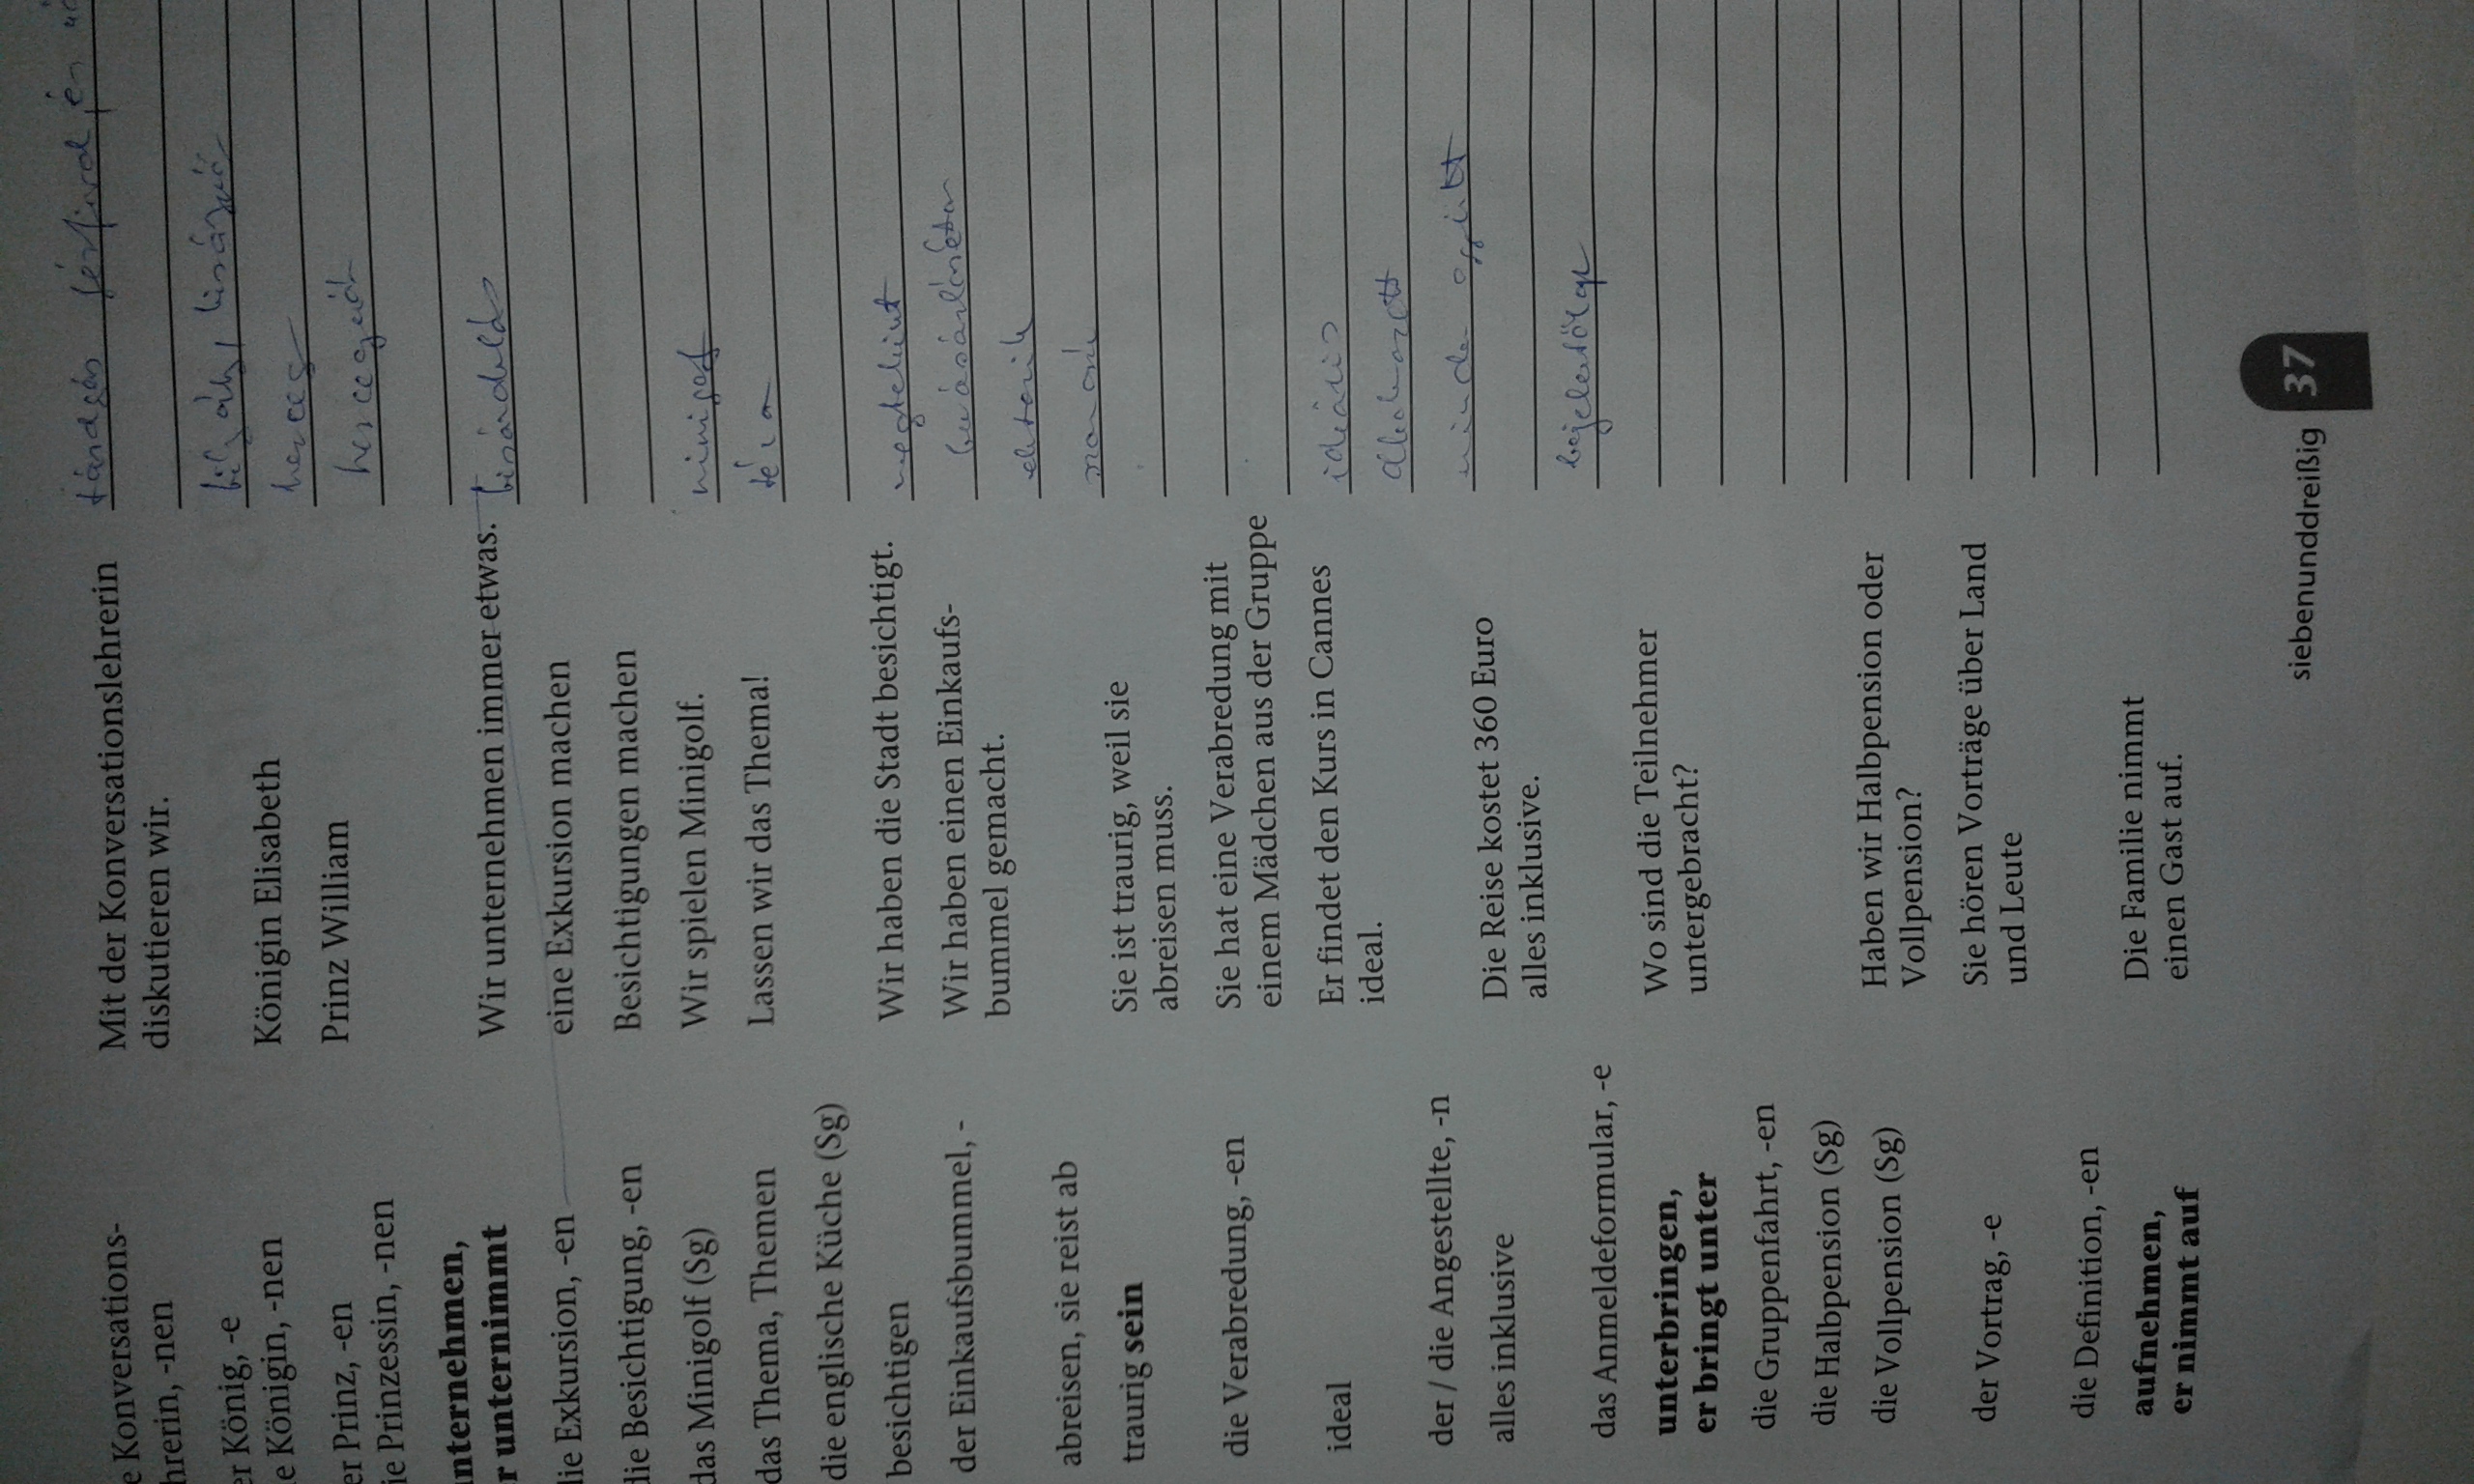 e Konversations-
hrerin, -nen
Mit der Konversationslehrerin
diskutieren wir.
er König, -e
e Königin, -nen
Königin Elisabeth
király királynő
er Prinz, -en
Prinz William
herceg
ie Prinzessin, -nen
hercegnő
nternehmen,
r unternimmt
Wir unternehmen immer etwas.
lie Exkursion, -en
eine Exkursion machen
die Besichtigung, -en
Besichtigungen machen
das Minigolf (Sg)
Wir spielen Minigolf.
minigolf
das Thema, Themen
Lassen wir das Thema!
téma
die englische Küche (Sg)
besichtigen
Wir haben die Stadt besichtigt.
megtekint
der Einkaufsbummel, -
Wir haben einen Einkaufs-
bummel gemacht.
abreisen, sie reist ab
traurig sein
Sie ist traurig, weil sie
abreisen muss.
die Verabredung, -en
Sie hat eine Verabredung mit
einem Mädchen aus der Gruppe
ideal
Er findet den Kurs in Cannes
ideal.
ideális
der / die Angestellte, -n
alkalmazott
alles inklusive
Die Reise kostet 360 Euro
alles inklusive.
minden együtt
das Anmeldeformular, -e
bejelentőlap
unterbringen,
er bringt unter
Wo sind die Teilnehmer
untergebracht?
die Gruppenfahrt, -en
die Halbpension (Sg)
die Vollpension (Sg)
Haben wir Halbpension oder
Vollpension?
der Vortrag, -e
Sie hören Vorträge über Land
und Leute
die Definition, -en
aufnehmen,
er nimmt auf
Die Familie nimmt
einen Gast auf.
siebenunddreißig 37